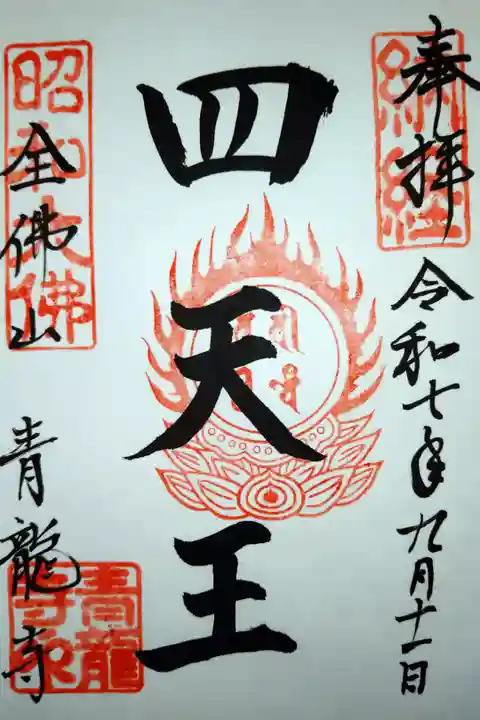 奉拝
令和七年九月十一日
納経
四天王
全佛山
青龍寺
昭和大佛
青龍寺印